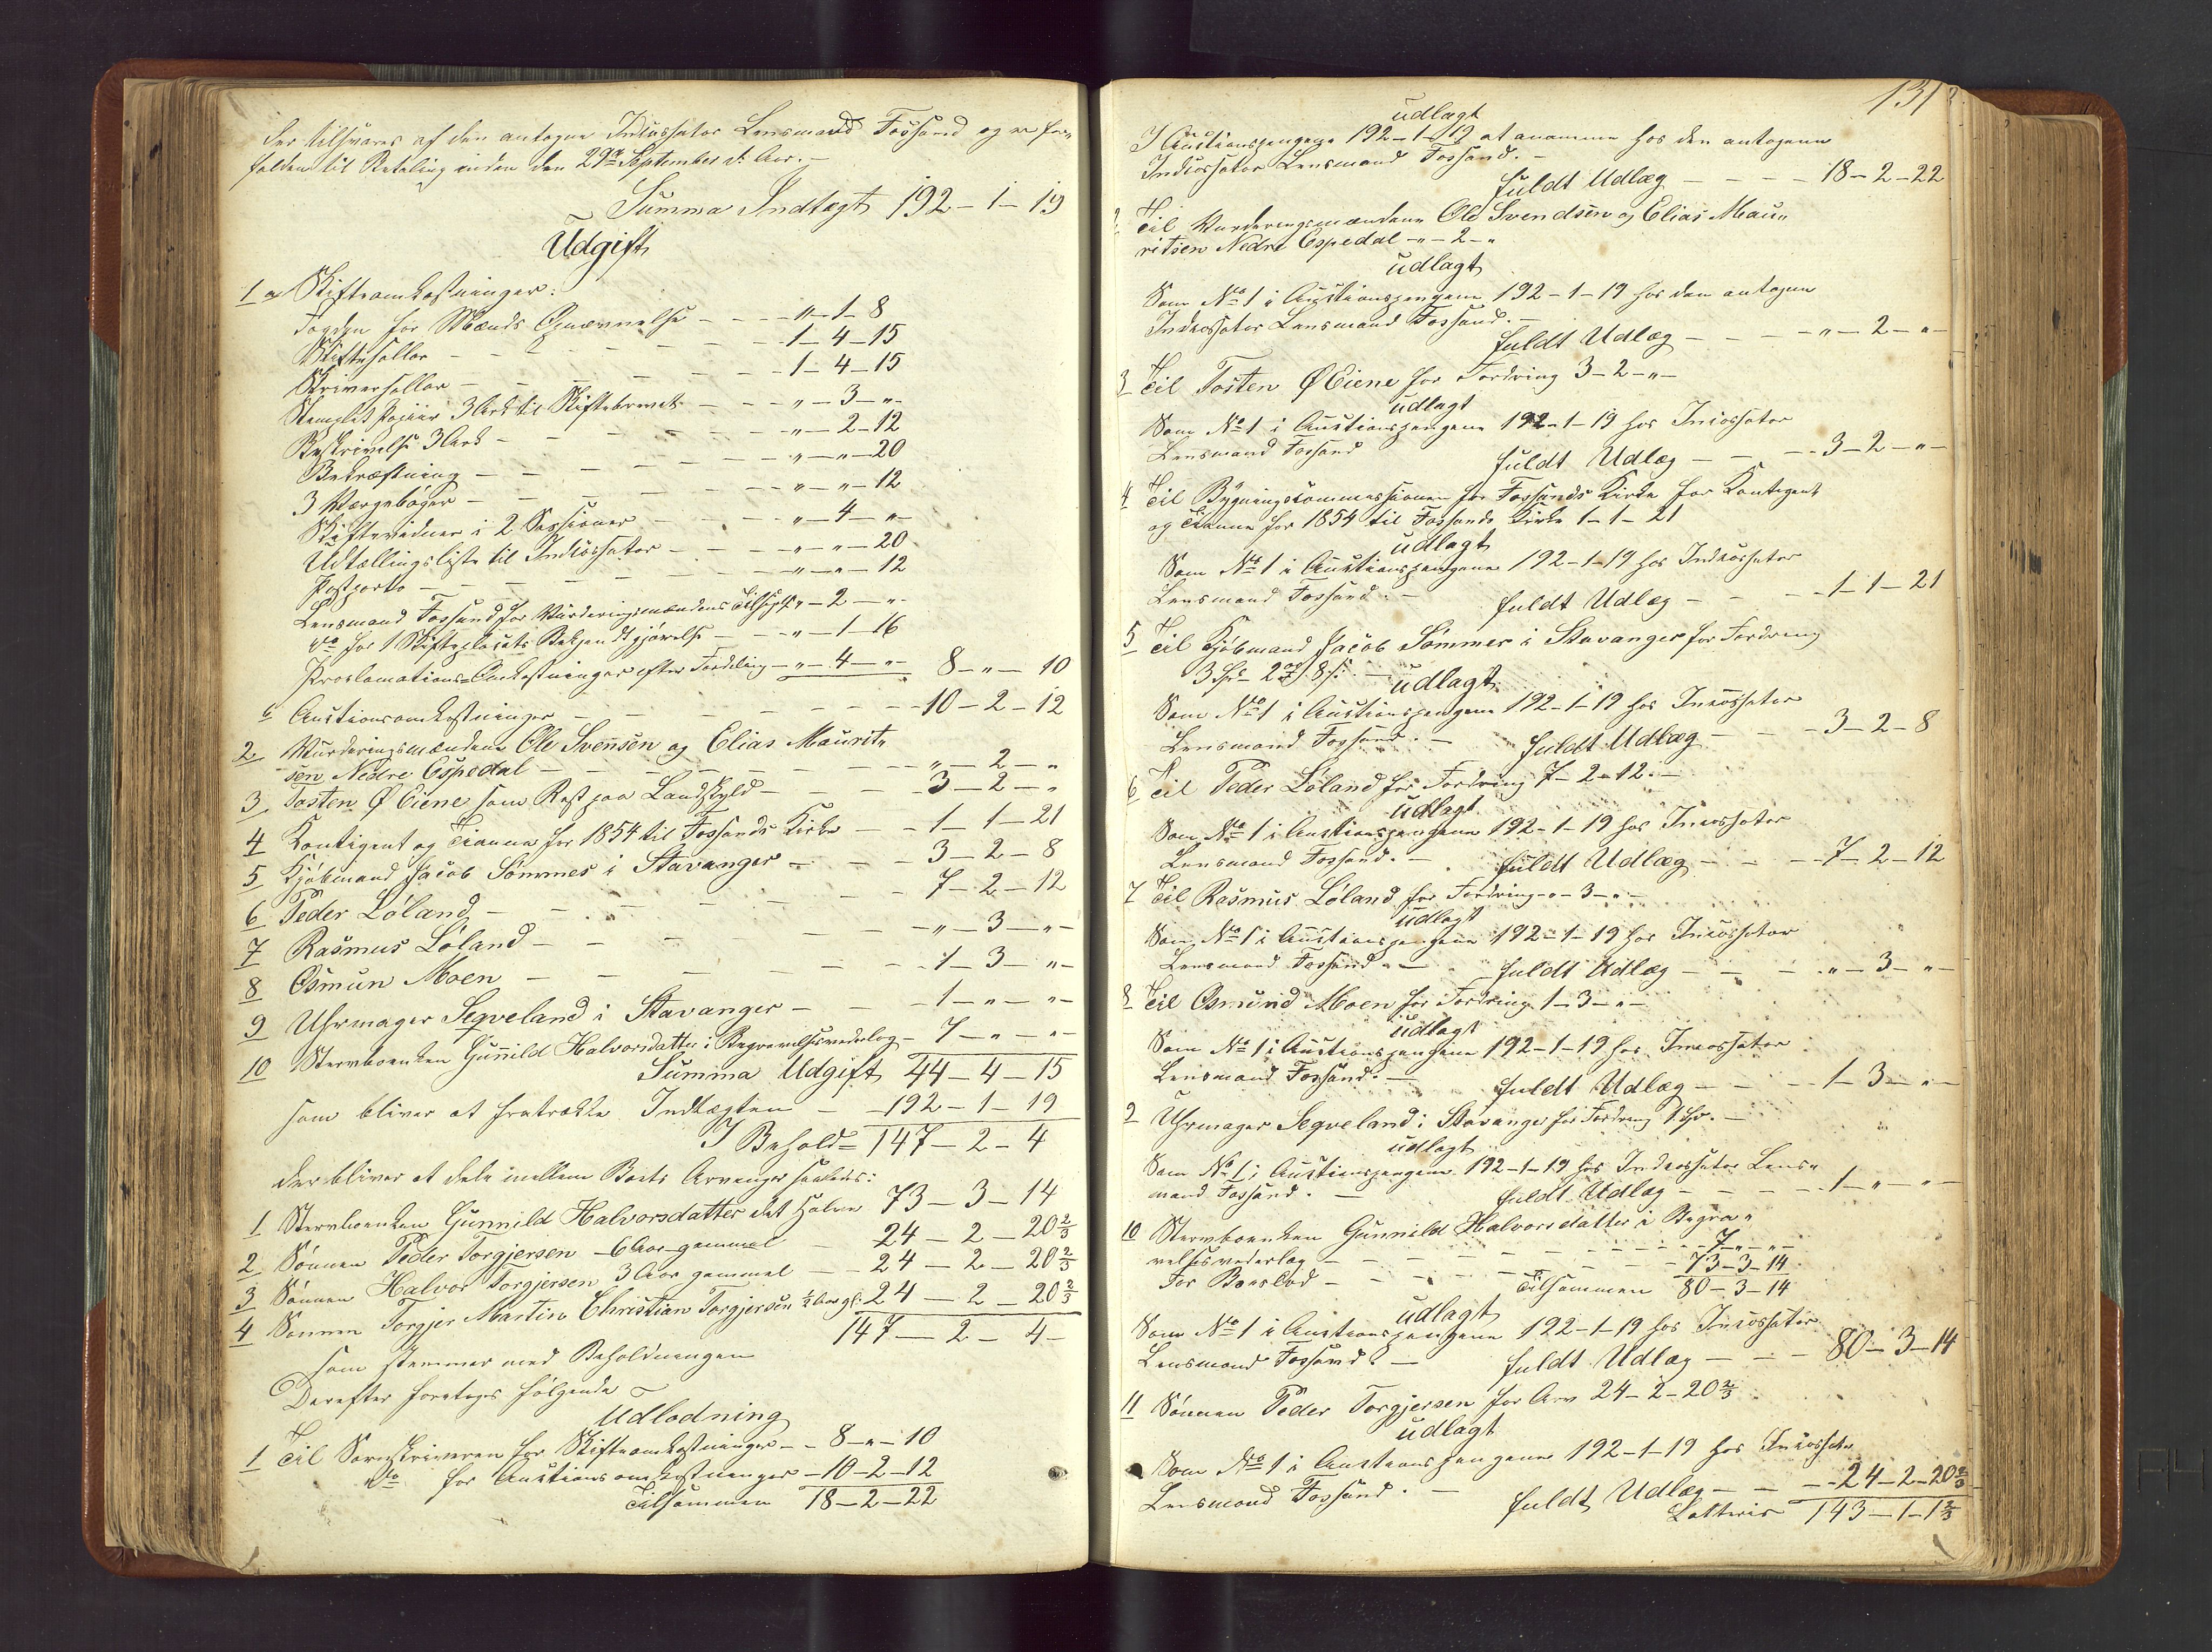 der tilsvares af den antagne Incassator Lensmand Fossand og er for-
falden til Betaling inden den 29de September d. Aar. –
Summa Indtægt 192 – 1 – 19
Udgift
1 a Skifteomkostninger:
Fogden for Mænds Opnævnelse – – „ – 1 – 8
Skiftesallar – – – – 1 – 4 – 15
Skriversallar – – – – 1 – 4 – 15
Stemplet Papiir 3 Ark til Skiftebrevet – – „ – 3 – „
Beskrivelse 3 Ark – – – „ – 2 – 12
Bekræftning – – – – „ – „ – 20
3 Værgebøger – – – – „ – „ – 12
Skiftevidner i 2 Sessioner – – – „ – 4 – „
Udtællingsliste til Incassator – – – „ – „ – 20
Postporto – – – – „ – „ – 12
Lensmand Fossand for Vurderingsmændenes Tilsigelse „ – 2 – „
do for 1 Skifteplacats Bekjendtgjørelse – – „ – 1 – 16
Proclamations-Omkostninger efter Fordeling – „ – 4 – „ 8 – „ – 10
b Auctionsomkostninger – – – – 10 – 2 – 12
2 Vurderingsmændene Ole Svensen og Elias Maurit-
sen Nedre Espedal – – – – „ – 2 – „
3 Tosten Ø Eiene som Rest paa Landskyld – – – 3 – 2 – „
4 Kontigent og Tiende for 1854 til Fossands Kirke – – 1 – 1 – 21
5 Kjøbmand Jacob Sømmes i Stavanger – – – 3 – 2 – 8
6 Peder Løland – – – – 7 – 2 – 12
7 Rasmus Løland – – – – „ – 3 – „
8 Osmun Moen – – – – 1 – 3 – „
9 Uhrmager Seqveland i Stavanger – – – 1 – „ – „
10 Stervboenken Gunnild Halvorsdatter i Begravelsesvederlag – 7 – „ – „
Summa Udgift 44 – 4 – 15
som bliver at fratrække Indtægten – 192 – 1 – 19
I Behold = 147 – 2 – 4
der bliver at dele mellem Boets Arvinger saaledes:
1 Stervboenken Gunnild Halvorsdatter det halve 73 – 3 – 14
2 Sønnen Peder Torgjersen – 6 Aar gammel – 24 – 2 – 20 2/3
3 Sønnen Halvor Torgjersen 3 Aar gammel – 24 – 2 – 20 2/3
4 Sønnen Torgjer Martin Christian Torgjersen 1/2 Aar gl. 24 – 2 – 20 2/3
147 – 2 – 4 –
som stemmer med Beholdningen
Derefter foretoges følgende
Udlodning
1 Til Sorenskriveren for Skifteomkostninger – – 8 – „ – 10
do for Auctionsomkostninger – 10 – 2 – 12
Tilsammen 18 – 2 – 22
131
udlagt
I Auctionspengene 192 – 1 – 19 at anamme hos den antagne
Incassator Lensmand Fossand. –
fuldt Udlæg – – – 18 – 2 – 22
2 Til Vurderingsmændene Ole Svendsen og Elias Mau-
ritsen Nedre Espedal – „ – 2 – „
udlagt
Som No 1 i Auctionspengene 192 – 1 – 19 hos den antagne
Incassator Lensmand Fossand. –
fuldt Udlæg – – – „ – 2 – „ –
3 Til Tosten Ø Eiene for Fordring 3 – 2 – „ –
udlagt
Som No 1 i Auctionspengene 192 – 1 – 19 hos Incassator
Lensmand Fossand
fuldt Udlæg – – – 3 – 2 – „ –
4 Til Bygningscommissionen for Fossands Kirke for Kontigent
og Tiende for 1854 til Fossands Kirke 1 – 1 – 21
udlagt
Som No 1 i Auctionspengene 192 – 1 – 19 hos Incassator
Lensmand Fossand. –
fuldt Udlæg – – – 1 – 1 – 21
5 Til Kjøbmand Jacob Sømmes i Stavanger for Fordring
3 Spd 2 8 s. –
udlagt
Som No 1 i Auctionspengene 192 – 1 – 19 hos Incassator
Lensmand Fossand. –
fuldt Udlæg – – – 3 – 2 – 8
6 Til Peder Løland for Fordring 7 – 2 – 12. –
udlagt
Som No 1 i Auctionspengene 192 – 1 – 19 hos Incassator
Lensmand Fossand. –
fuldt Udlæg – – – 7 – 2 – 12
7 Til Rasmus Løland for Fordring – „ – 3 – „ –
udlagt
Som No 1 i Auctionspengene 192 – 1 – 19 hos Incassator
Lensmand Fossand. –
fuldt Udlæg – – – „ – 3 – „ –
8 Til Osmund Moen for Fordring 1 – 3 – „ –
udlagt
Som No 1 i Auctionspengene 192 – 1 – 19 hos Incassator
Lensmand Fossand. –
fuldt Udlæg – – – 1 – 3 – „ –
9 Uhrmager Seqveland i Stavanger for Fordring 1 Spd. –
udlagt
Som No 1 i Auctionspengene 192 – 1 – 19 hos Incassator Lens-
mand Fossand. –
fuldt Udlæg – – – 1 – „ – „ –
10 Stervboenken Gunnild Halvorsdatter i Begra-
velsesvederlag – – – – 7 – „ – „ –
For Boeslod – – – – 73 – 3 – 14
Tilsammen 80 – 3 – 14
udlagt
Som No 1 i Auctionspengene 192 – 1 – 19 hos Incassator
Lensmand Fossand. –
fuldt Udlæg – – – 80 – 3 – 14
11 Sønnen Peder Torgjersen for Arv 24 – 2 – 20 2/3
udlagt
Som No 1 i Auctionspengene 192 – 1 – 19 hos Incassator
Lensmand Fossand. –
fuldt Udlæg – – – 24 – 2 – 20 2/3
Latteris 143 – 1 – 1 2/3